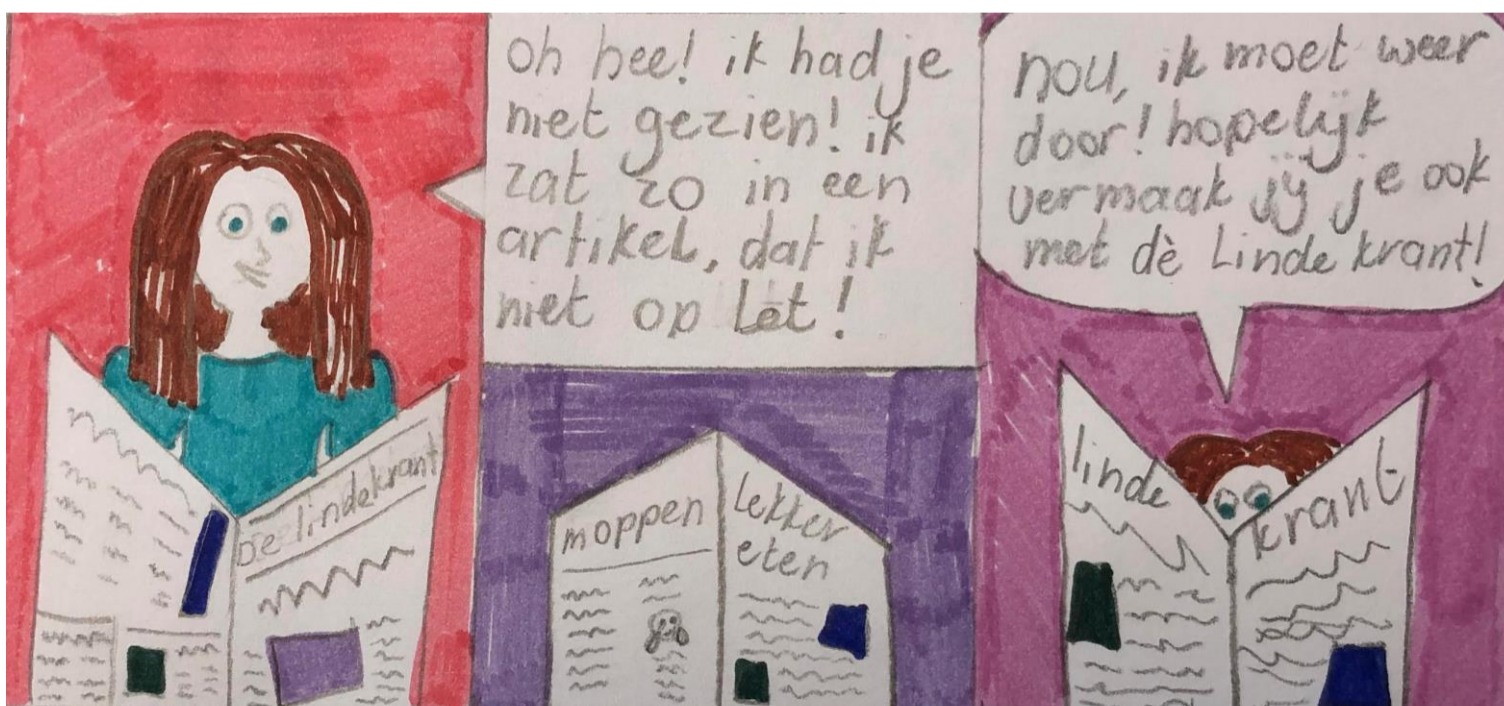 oh hee! ik had je
niet gezien! ik
zat zo in een
artikel, dat ik
niet op lèt!
De lindekrant
moppen
Lekker
eten
nou, ik moet weer
door! hopelijk
vermaak jij je ook
met dè Linde krant!
linde
krant